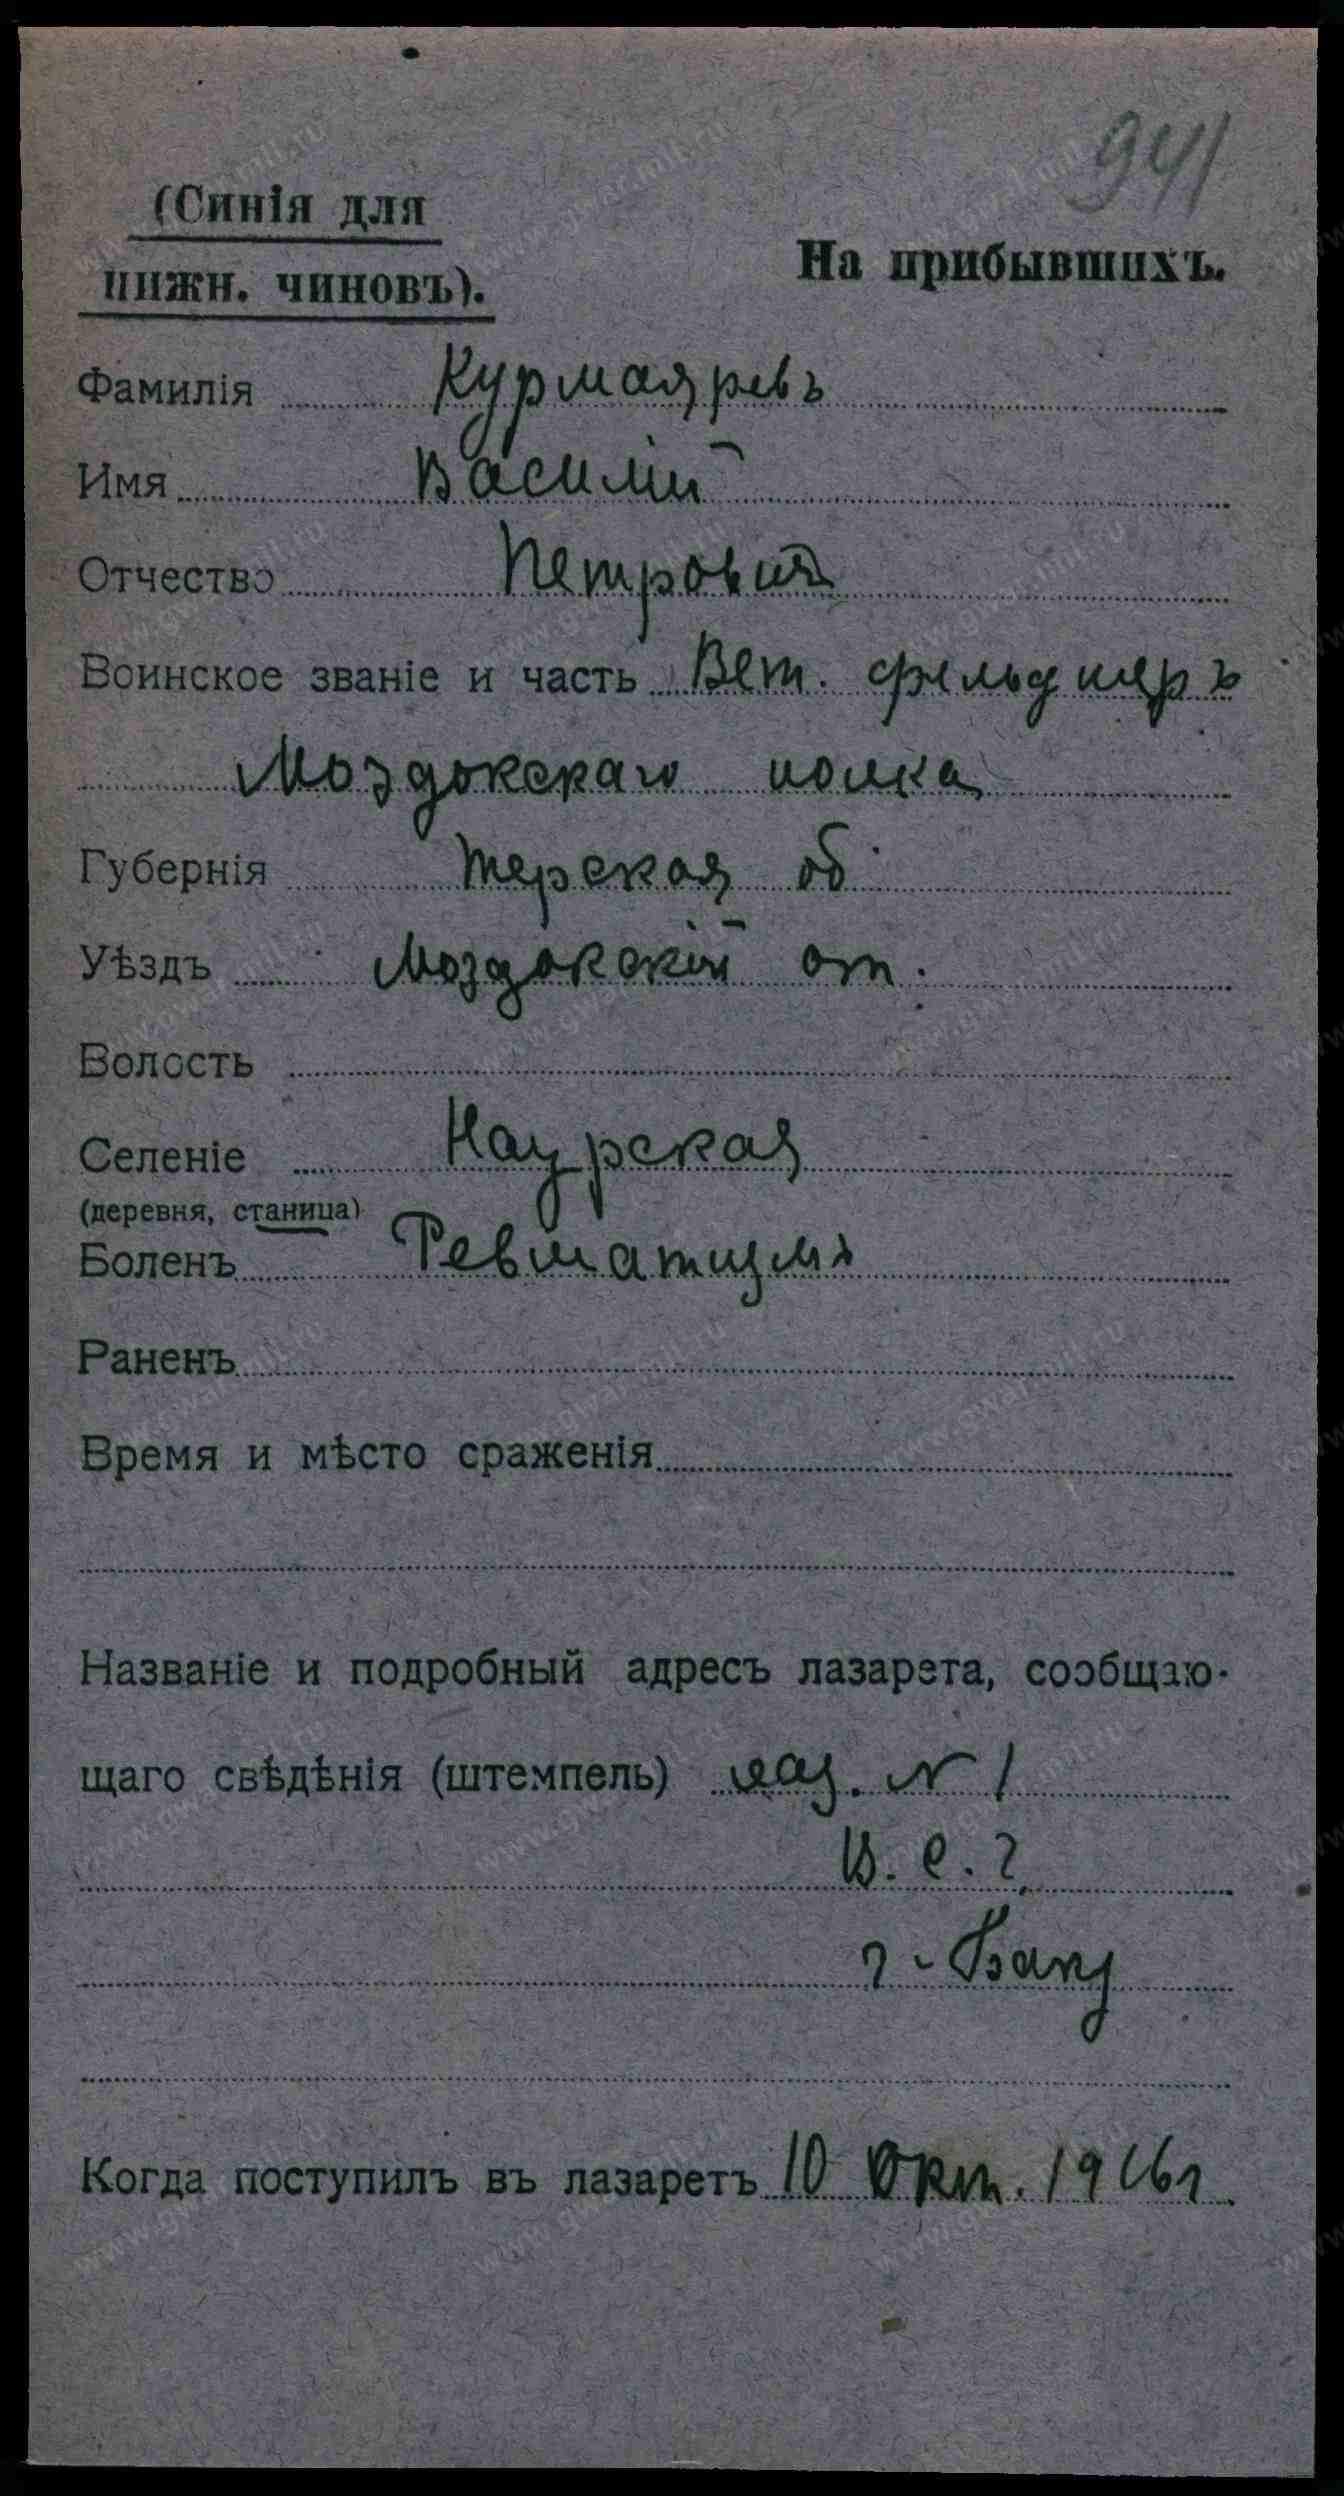 941
(Синія для
нижн. чиновъ).
На прибывшихъ.
Фамилія Курмаяревъ
Имя Василій
Отчество Петровичъ
Воинское званіе и часть Вет. фельдшеръ
Моздокскаго полка
Губернія Терская об.
Уѣздъ Моздокскій от.
Волость
Селеніе Наурская
(деревня, станица)
Боленъ Ревматизмъ
Раненъ
Время и мѣсто сраженія
Названіе и подробный адресъ лазарета, сообщаю-
щаго свѣдѣнія (штемпель) лаз. № 1
В. С. Г.
г. Баку
Когда поступилъ въ лазаретъ 10 Окт. 1916 г.